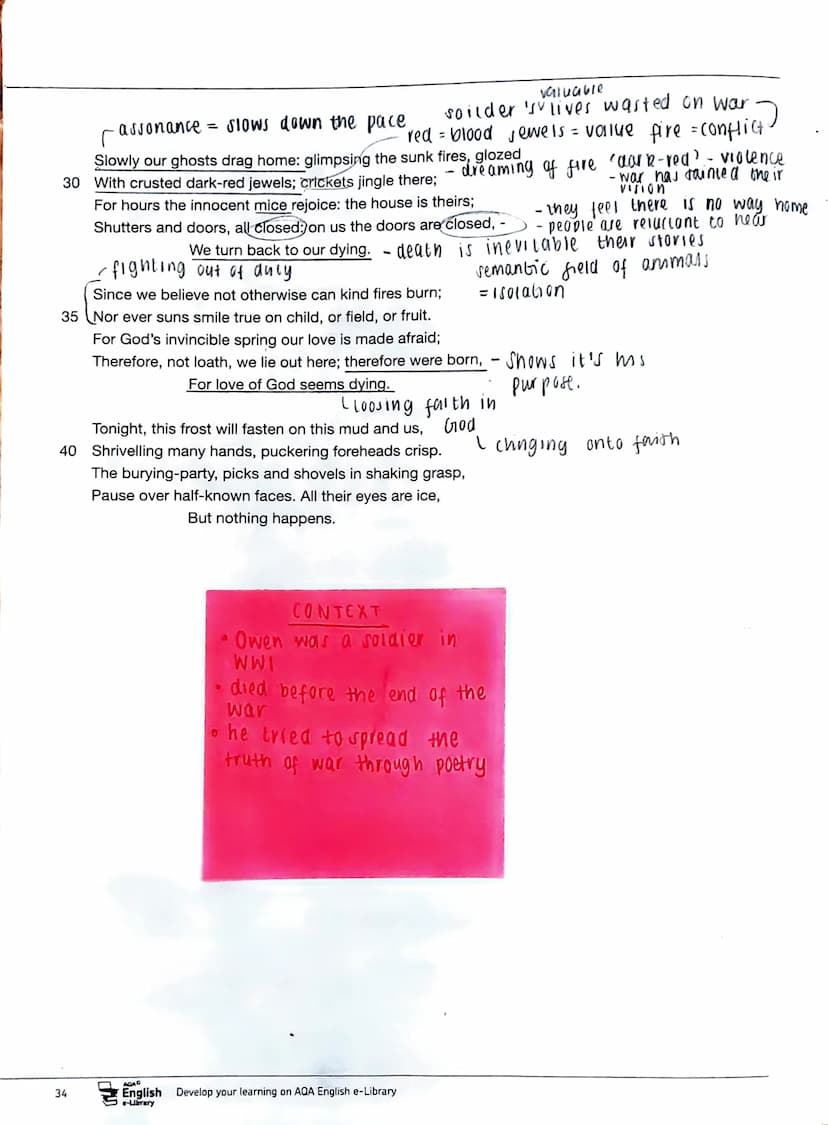 valuable
soilder 's lives wasted on war
assonance = slows down the pace
red = blood jewels = value fire = conflict
Slowly our ghosts drag home: glimpsing the sunk fires, glozed
- dreaming of fire 'dark-red' - violence
30 With crusted dark-red jewels; crickets jingle there;
- war has tainted their
vision
For hours the innocent mice rejoice: the house is theirs;
- they feel there is no way home
Shutters and doors, all closed: on us the doors are closed, -
- people are reluctant to hear
their stories
We turn back to our dying. - death is inevitable
fighting out of duty
semantic field of animals
= isolation
Since we believe not otherwise can kind fires burn;
35 Nor ever suns smile true on child, or field, or fruit.
For God's invincible spring our love is made afraid;
Therefore, not loath, we lie out here; therefore were born, - shows it's his
purpose.
For love of God seems dying.
loosing faith in
God
Tonight, this frost will fasten on this mud and us,
clinging onto faith
40 Shrivelling many hands, puckering foreheads crisp.
The burying-party, picks and shovels in shaking grasp,
Pause over half-known faces. All their eyes are ice,
But nothing happens.
CONTEXT
• Owen was a soldier in
WWI
• died before the end of the
war
• he tried to spread the
truth of war through poetry
34 AQA English e-Library Develop your learning on AQA English e-Library